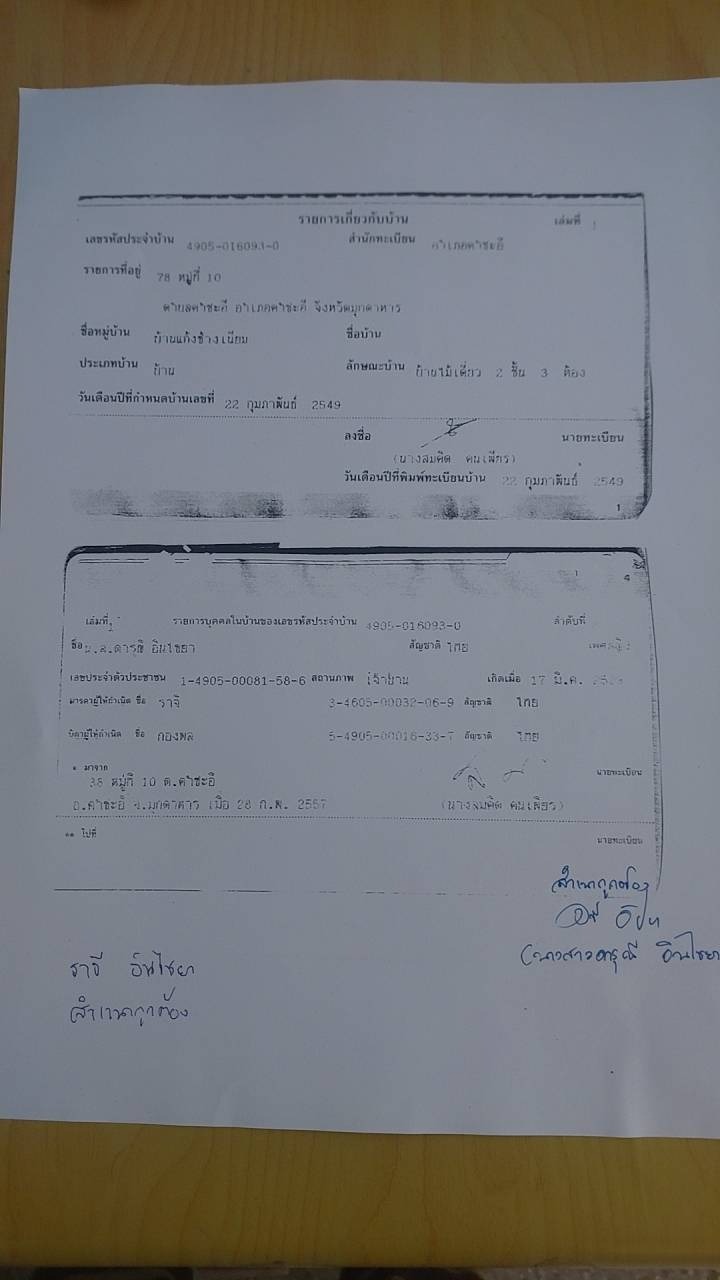 รายการเกี่ยวกับบ้าน เล่มที่ 1
เลขรหัสประจำบ้าน 4905-016093-0 สำนักทะเบียน อำเภอคำชะอี
รายการที่อยู่ 78 หมู่ที่ 10
ตำบลคำชะอี อำเภอคำชะอี จังหวัดมุกดาหาร
ชื่อหมู่บ้าน บ้านแก้งช้างเนียม ชื่อบ้าน
ประเภทบ้าน บ้าน ลักษณะบ้าน บ้านไม้เดี่ยว 2 ชั้น 3 ห้อง
วันเดือนปีที่กำหนดบ้านเลขที่ 22 กุมภาพันธ์ 2549
ลงชื่อ นายทะเบียน
(นางสมคิด คนเพียร)
วันเดือนปีที่พิมพ์ทะเบียนบ้าน 22 กุมภาพันธ์ 2549
1
4
เล่มที่ 1 รายการบุคคลในบ้านของเลขรหัสประจำบ้าน 4905-016093-0 ลำดับที่
ชื่อ น.ส.ดารุณี อินไชยา สัญชาติ ไทย เพศ หญิง
เลขประจำตัวประชาชน 1-4905-00081-58-6 สถานภาพ เจ้าบ้าน เกิดเมื่อ 17 มี.ค.
มารดาผู้ให้กำเนิด ชื่อ ราจี 3-4605-00032-06-9 สัญชาติ ไทย
บิดาผู้ให้กำเนิด ชื่อ กองพล 5-4905-00016-33-7 สัญชาติ ไทย
* มาจาก
38 หมู่ที่ 10 ต.คำชะอี นายทะเบียน
อ.คำชะอี จ.มุกดาหาร เมื่อ 28 ก.พ. 2557 (นางสมคิด คนเพียร)
** ไปที่ นายทะเบียน
สำเนาถูกต้อง
(นางสาวดารุณี อินไชยา
ราจี อินไชยา
สำเนาถูกต้อง